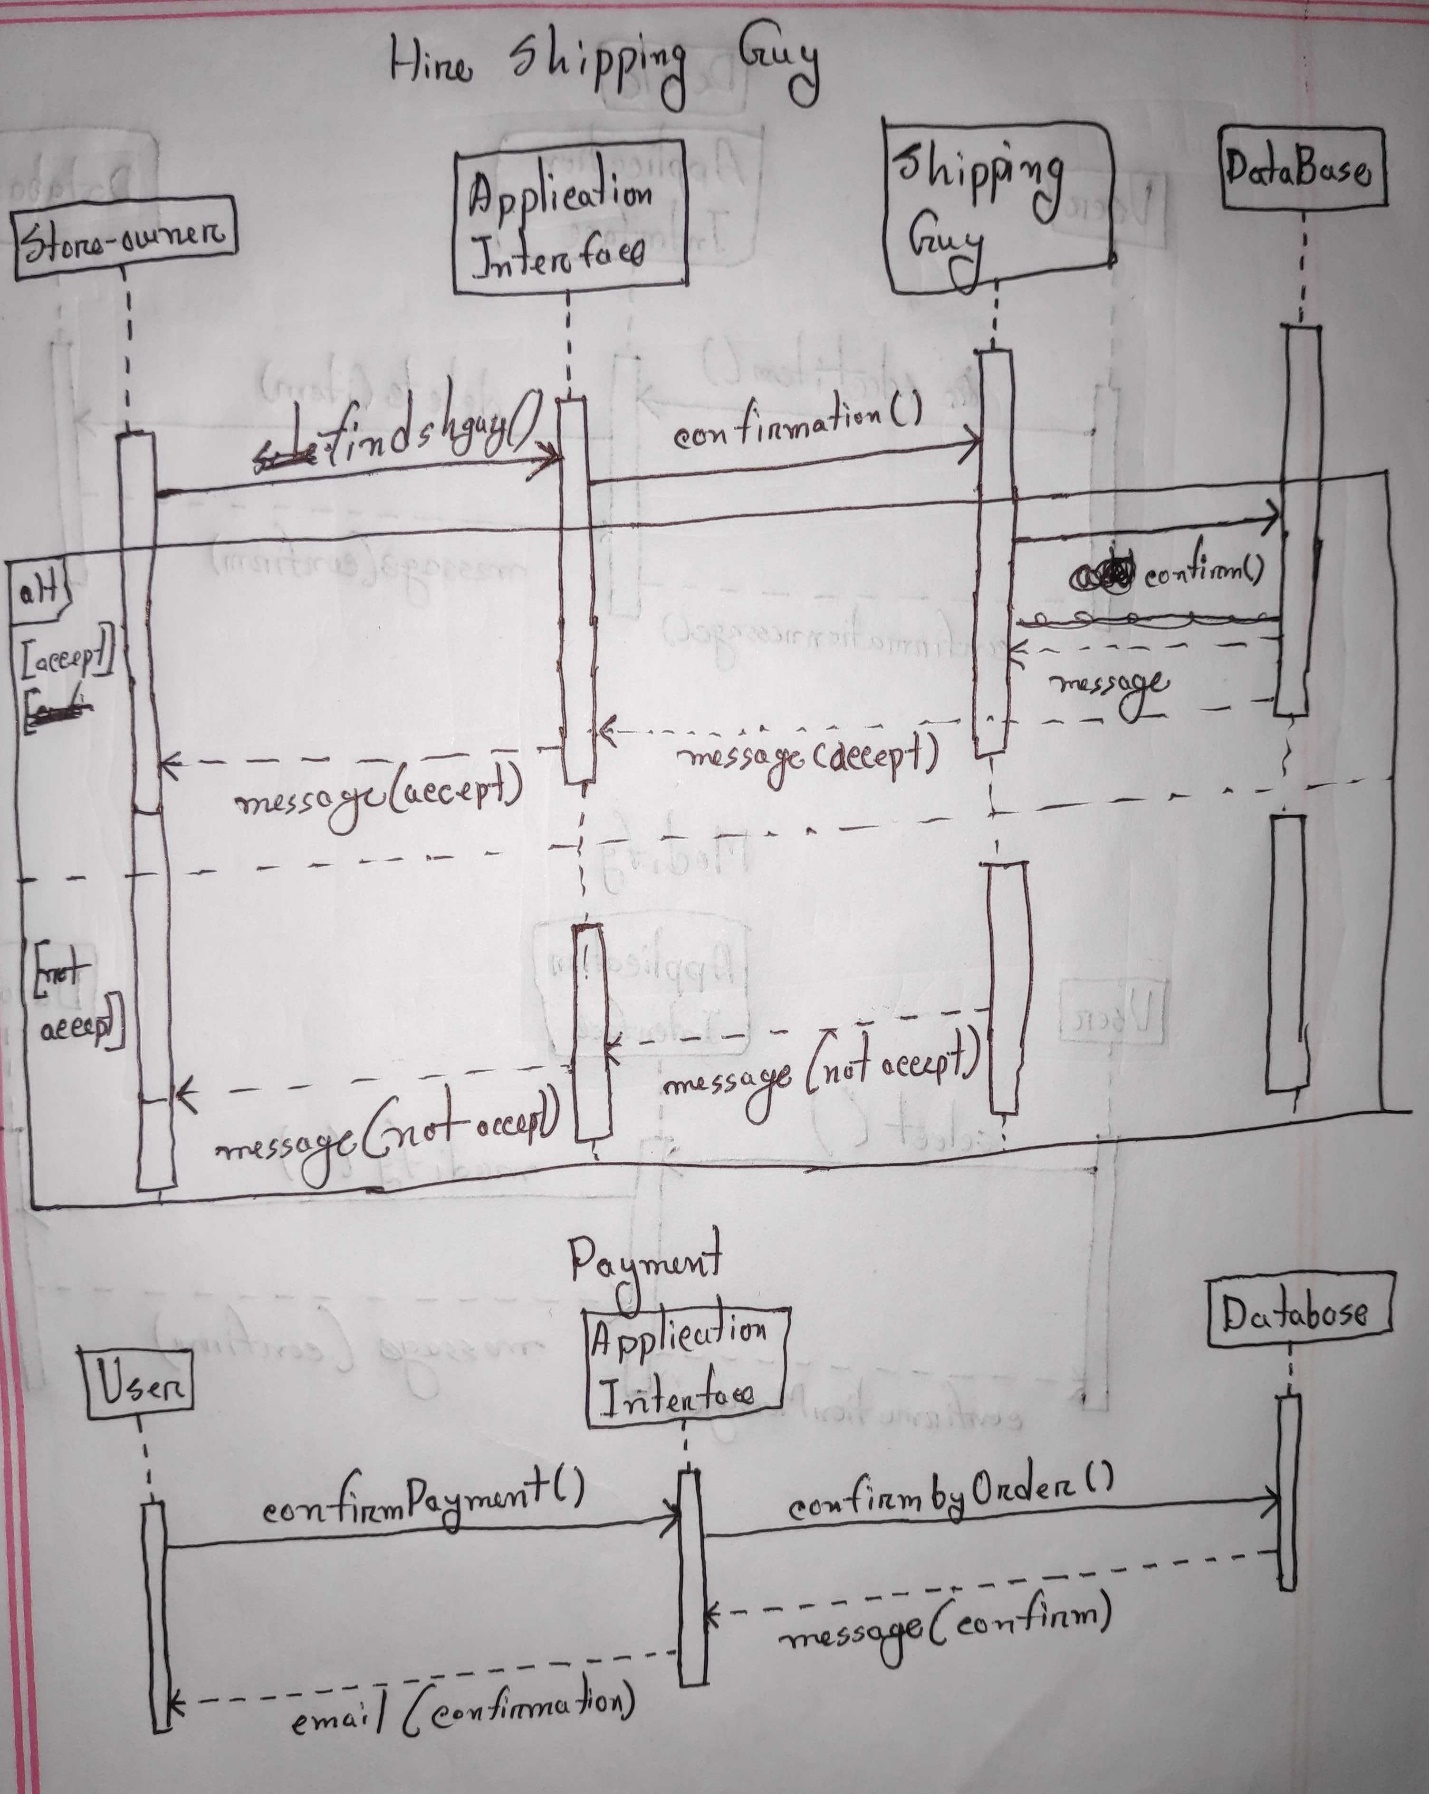 Hire Shipping Guy
Store-owner
Application
Interface
Shipping
Guy
DataBase
findshguy()
confirmation()
confirm()
alt
[accept]
message
message(accept)
message(accept)
[not
accept]
message (not accept)
message (not accept)
Payment
User
Application
Interface
Database
confirmPayment()
confirmbyOrder()
message(confirm)
email (confirmation)